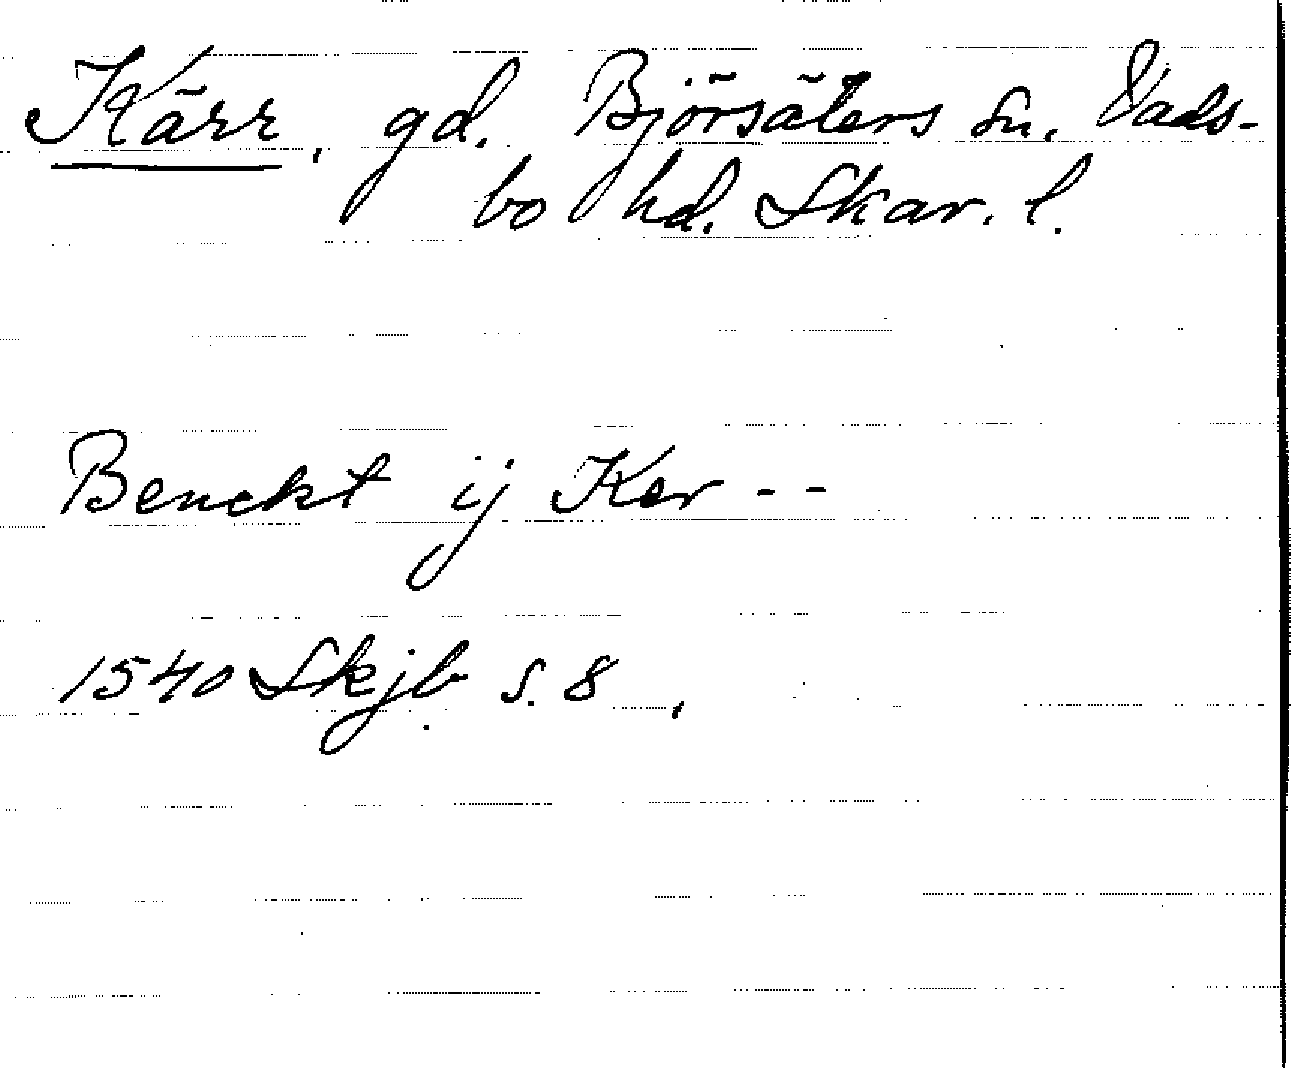 Kärr, gd. Björsäters sn. Vads-
bo hd. Skar. l.
Benckt ij Ker - -
1540 Skjb s. 8,